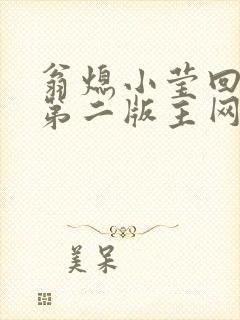 翁熄小莹回
第二版主网
美呆